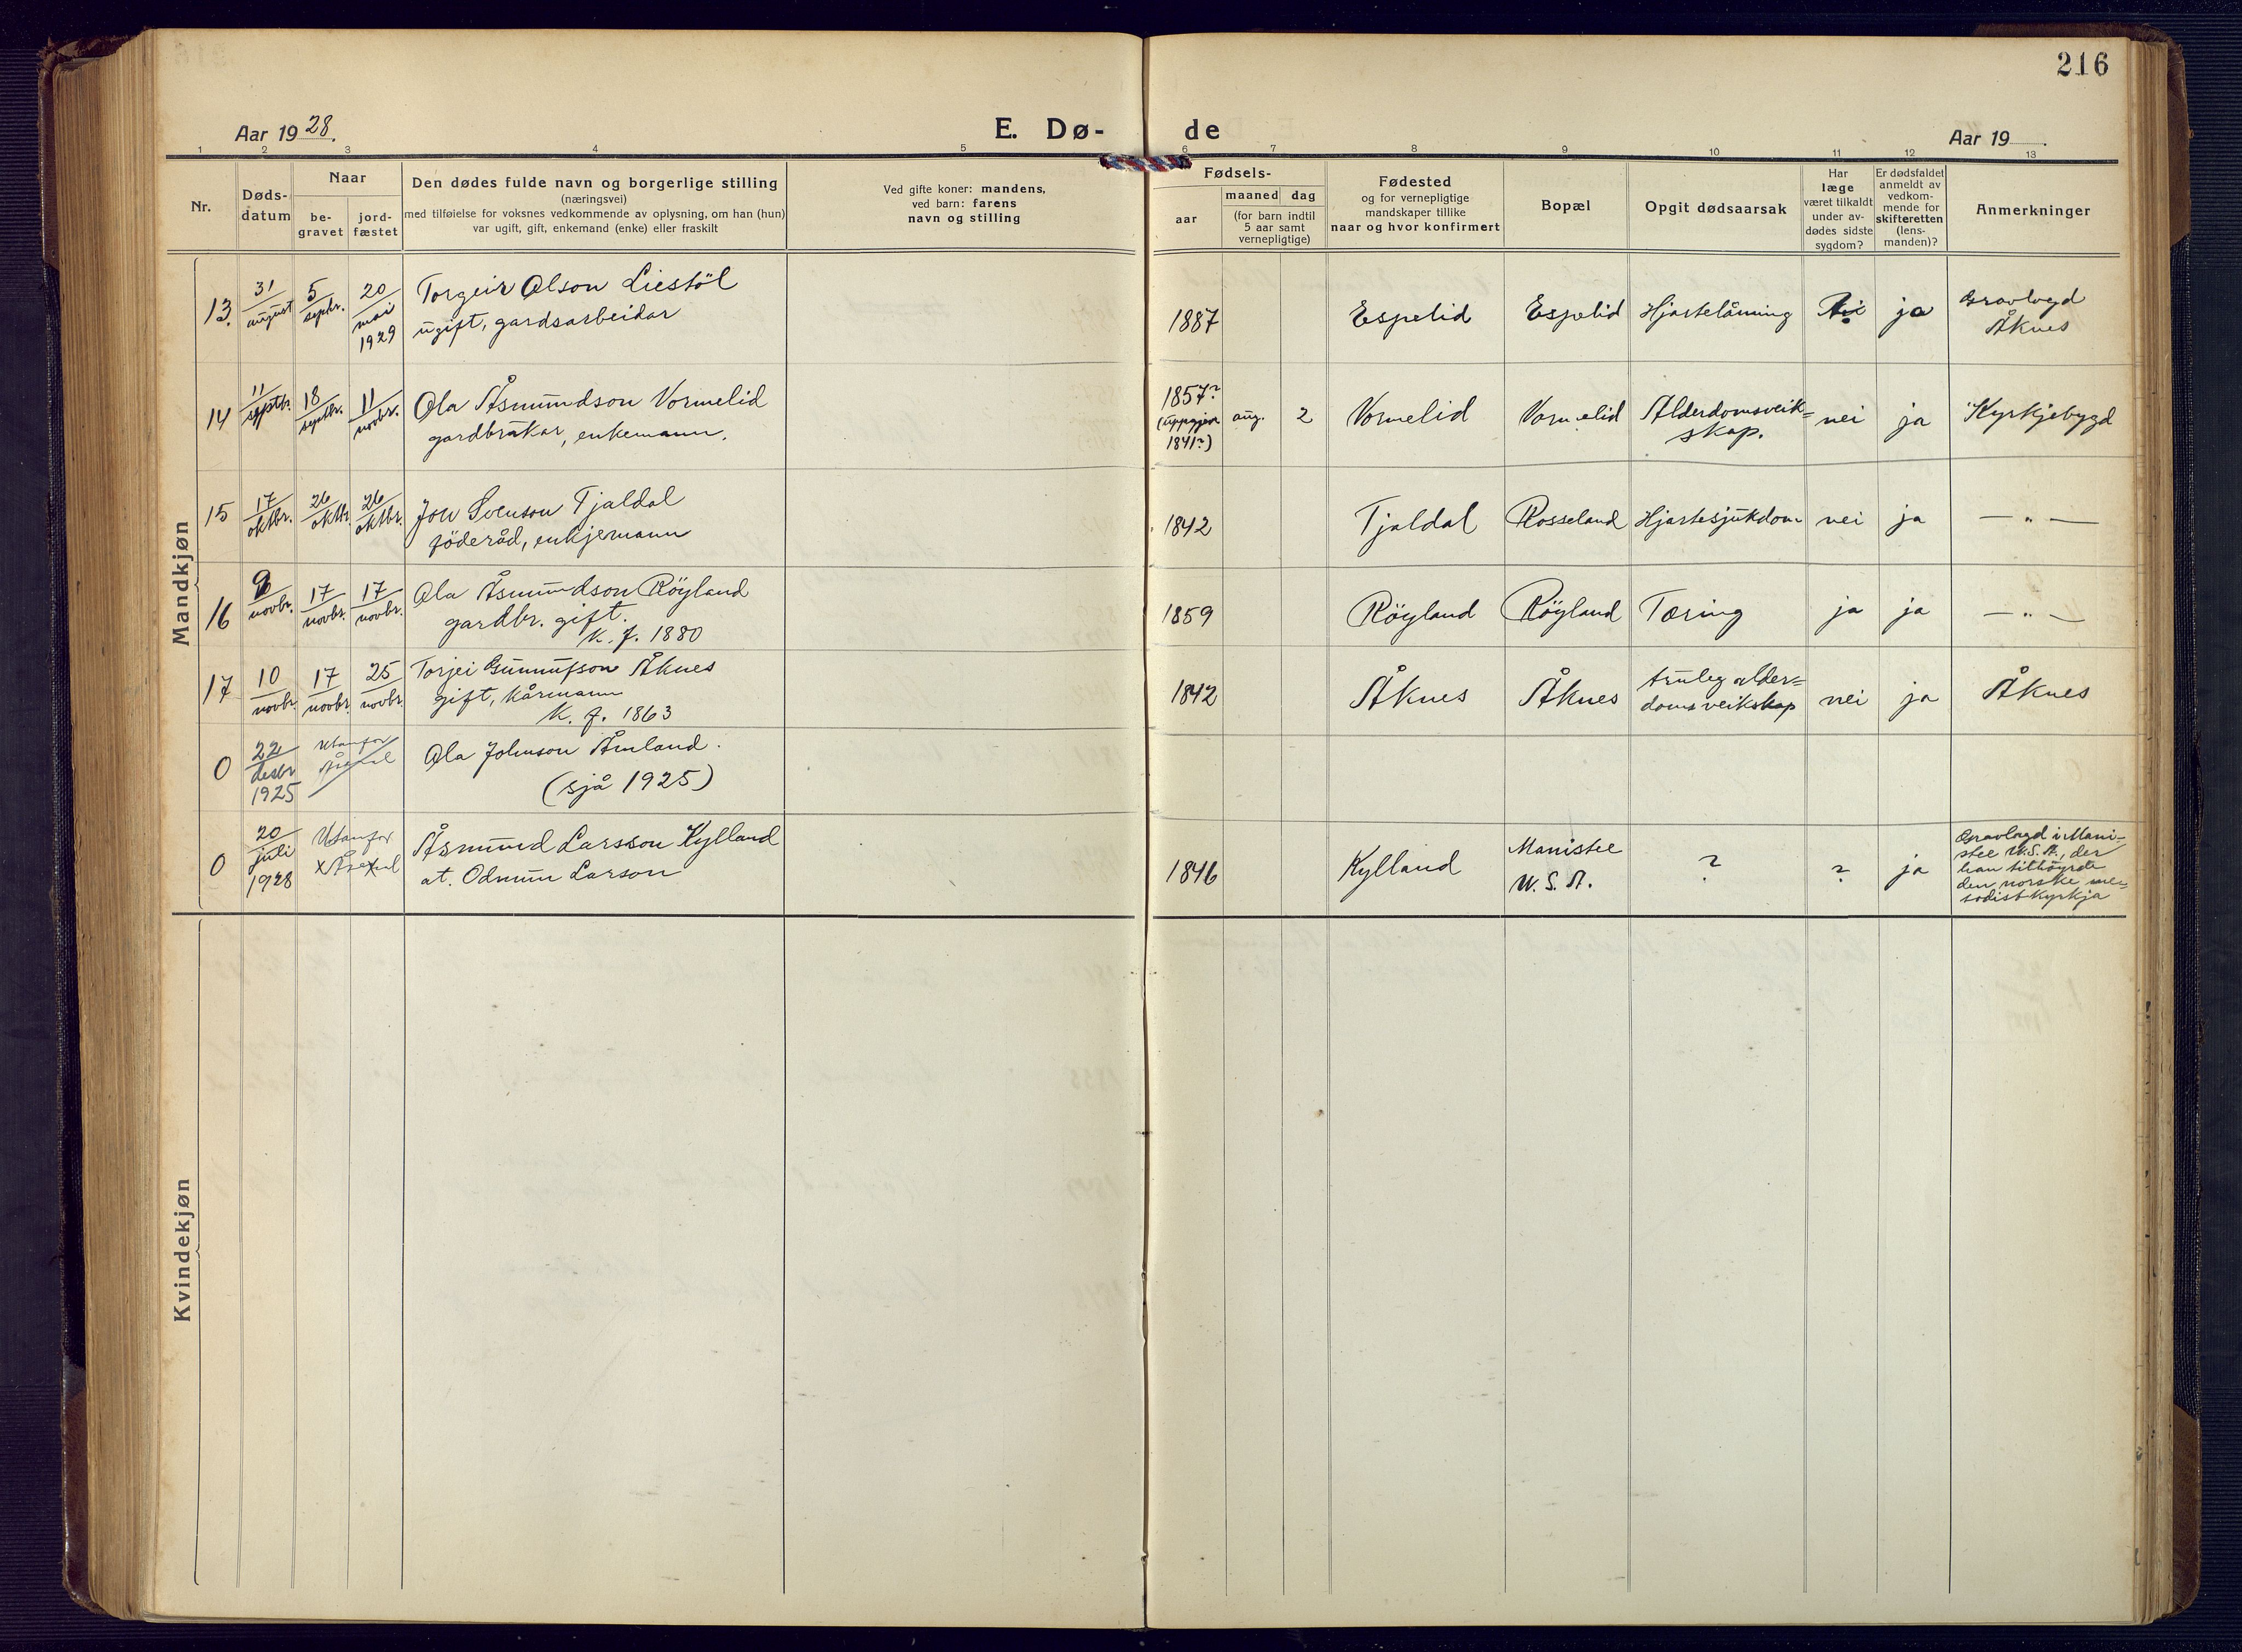 216
Aar 1928.
E. Dø-
de
Aar 19 .
1 2 3 4 5 6 7 8 9 10 11 12 13
Nr.
Døds-
datum
Naar
be-
gravet
jord-
fæstet
Den dødes fulde navn og borgerlige stilling
(næringsvei)
med tilføielse for voksnes vedkommende av oplysning, om han (hun)
var ugift, gift, enkemand (enke) eller fraskilt
Ved gifte koner: mandens,
ved barn: farens
navn og stilling
Fødsels-
aar
maaned dag
(for barn indtil
5 aar samt
vernepligtige)
Fødested
og for vernepligtige
mandskaper tillike
naar og hvor konfirmert
Bopæl
Opgit dødsaarsak
Har
læge
været tilkaldt
under av-
dødes sidste
sygdom?
Er dødsfaldet
anmeldt av
vedkom-
mende for
skifteretten
(lens-
manden)?
Anmerkninger
Mandkjøn
13.
31
august
5
septr.
20
mai
1929
Torgeir Olson Liestöl
ugift, gardsarbeidar
1887
Espelid
Espelid
Hjartelåming
ja
Gravlagd
Åknes
14
11
septbr.
18
septbr.
11
novbr.
Ola Åsmundson Vormelid
gardbrukar, enkemann.
1857?
(uppgjeve
1841?)
aug.
2
Vormelid
Vormelid
Alderdomsveik=
skap.
nei
ja
Kyrkjebygd
15
17
oktbr.
26
oktbr.
26
oktbr.
Jon Svenson Tjaldal
föderåd, enkjemann
1842
Tjaldal
Rosseland
Hjartesjukdom
nei
ja
— " —
16
9
novbr.
17
novbr.
17
novbr.
Ola Åsmundson Röyland
gardbr. gift.
K. f. 1880
1859
Röyland
Röyland
Tæring
ja
ja
— " —
17
10
novbr.
17
novbr.
25
novbr.
Torjei Gunnufson Åknes
gift, kårmann
K. f. 1863
1842
Åknes
Åknes
truleg alder=
doms veikskap
nei
ja
Åknes
0
22
desbr
1925
Utanfor
Åseral
Ola Johnson Åmland.
(sjå 1925)
0
20
juli
1928
Utanfor
x Åseral
Åsmund Larsson Kylland
at. Odmun Larson
1846
Kylland
Manistee
U. S. A.
?
?
ja
Gravlagd i Mani-
stee U.S.A., der
han tilhöyrde
den norske me-
todistkyrkja
Kvindekjøn